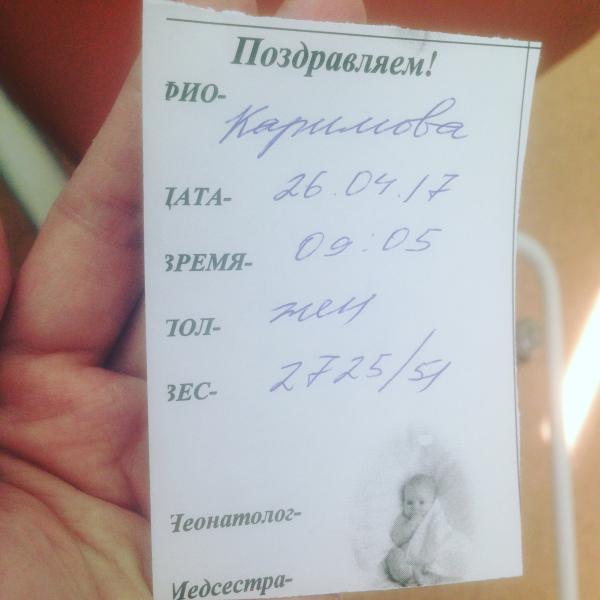 Поздравляем!
ФИО-
Каримова
ДАТА- 26.04.17
ВРЕМЯ- 09:05
ПОЛ- жен
ВЕС- 2725/51
Неонатолог-
Медсестра-